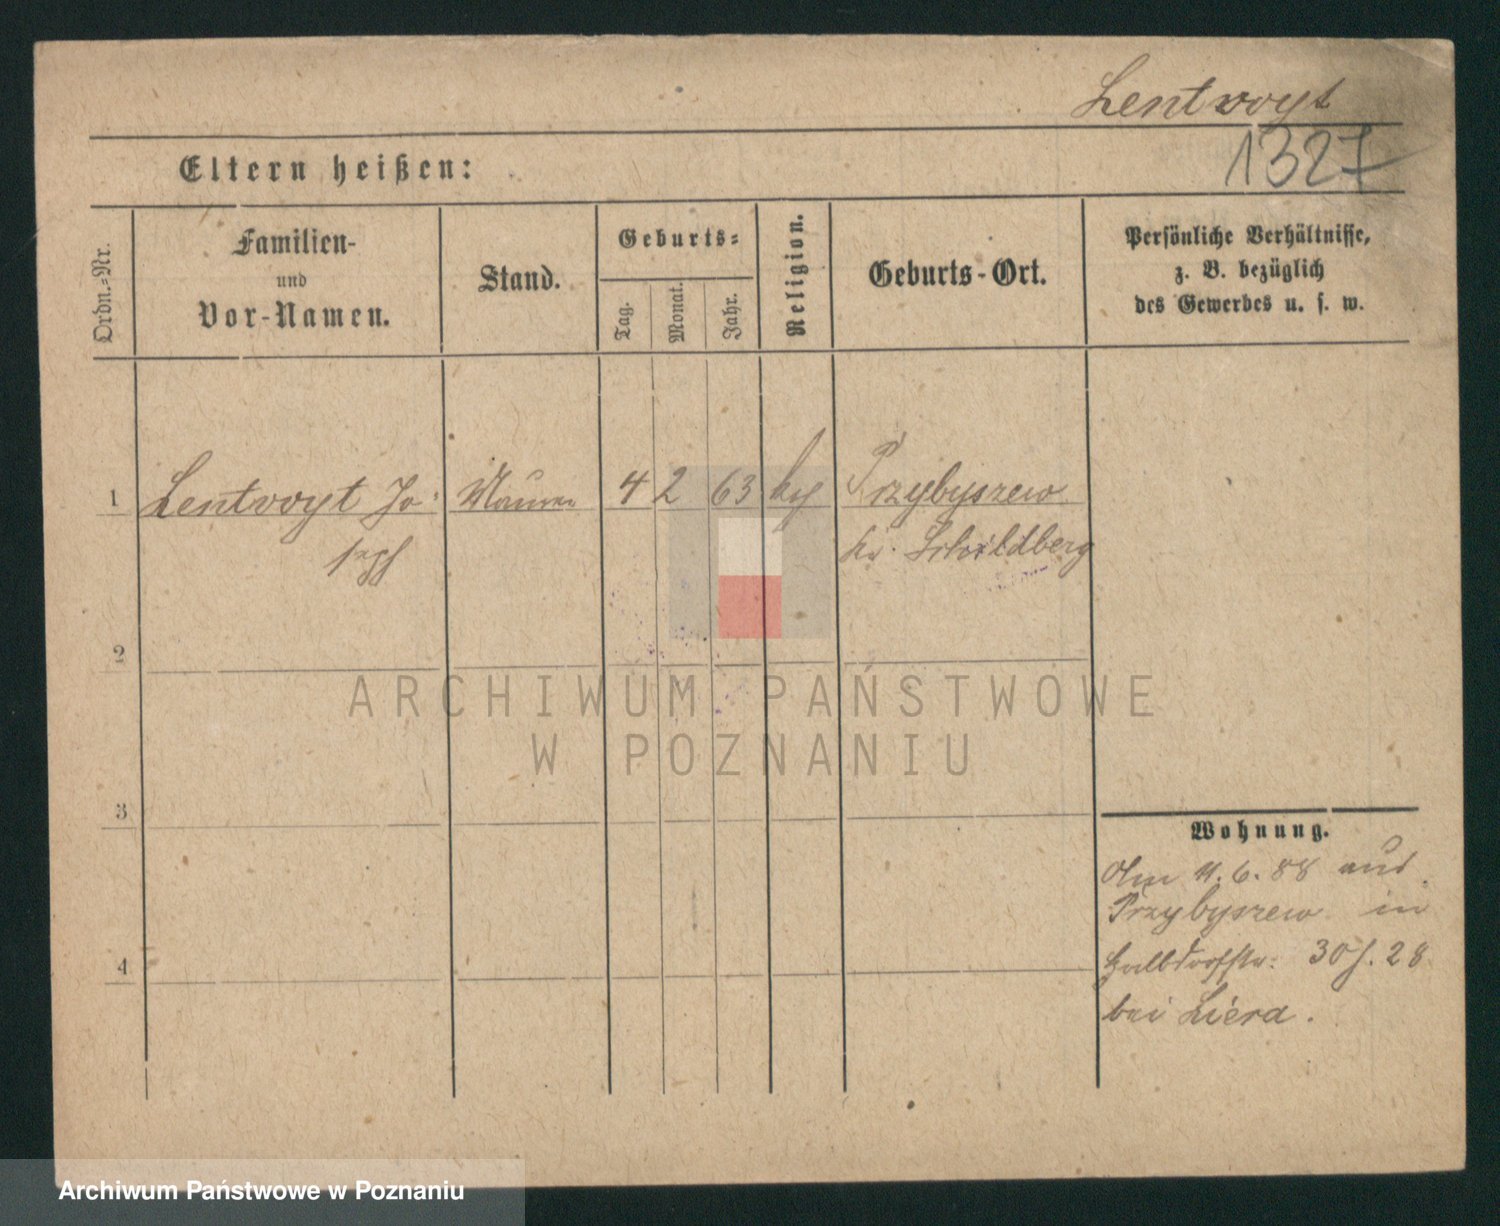 Lentvoyt
1327
Eltern heißen:
Ordn.-Nr.
Familien-
und
Vor-Namen.
Stand.
Geburts-
Tag.
Monat.
Jahr.
Religion.
Geburts-Ort.
Persönliche Verhältnisse,
z. B. bezüglich
des Gewerbes u. s. w.
1 Lentvoyt Jo- Maurer 4 2 63 Przybyszew
seph Schildberg
2
3
4
Wohnung.
Am 11.6.88 aus
Przybyszew in
Halbdorfstr. 30 28
bei Liera.
ARCHIWUM PAŃSTWOWE
W POZNANIU
Archiwum Państwowe w Poznaniu